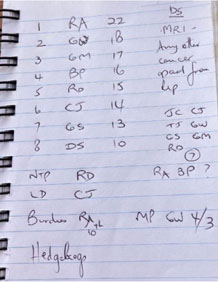 DS
1 RA 22
MRI -
2 GW 18
Any other
3 GM 17
cancer
4 BP 16
apart from
5 RO 15
hip
6 CJ 14
JC CJ
7 GS 13
TJ GW
8 DS 10
GS GM
RO
7
NTP RD
RA BP ?
LD CJ
RA 10th
MP GW 4/3
Hedgehogs